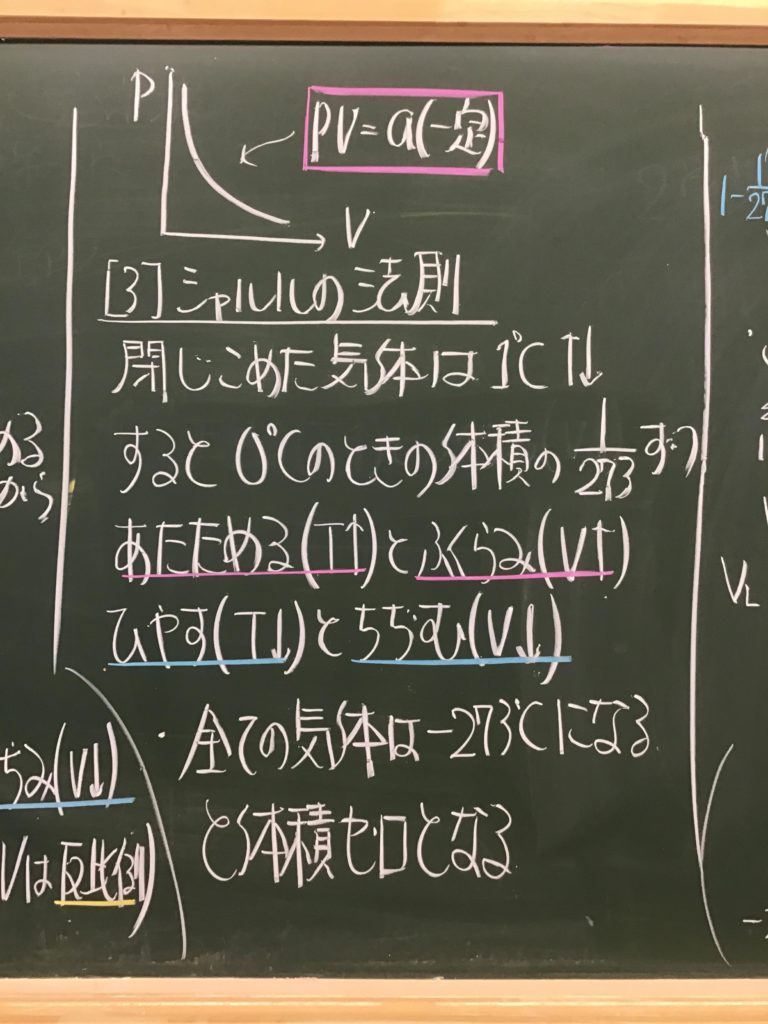 P
PV=a(一定)
V
[3]シャルルの法則
閉じこめた気体は1℃↑↓
すると0℃のときの体積の1/273ずつ
あたためる(T↑)とふくらみ(V↑)
ひやす(T↓)とちぢむ(V↓)
・全ての気体は-273℃になる
と体積ゼロとなる
める
から
ちみ(V↓)
Vは反比例)
VL